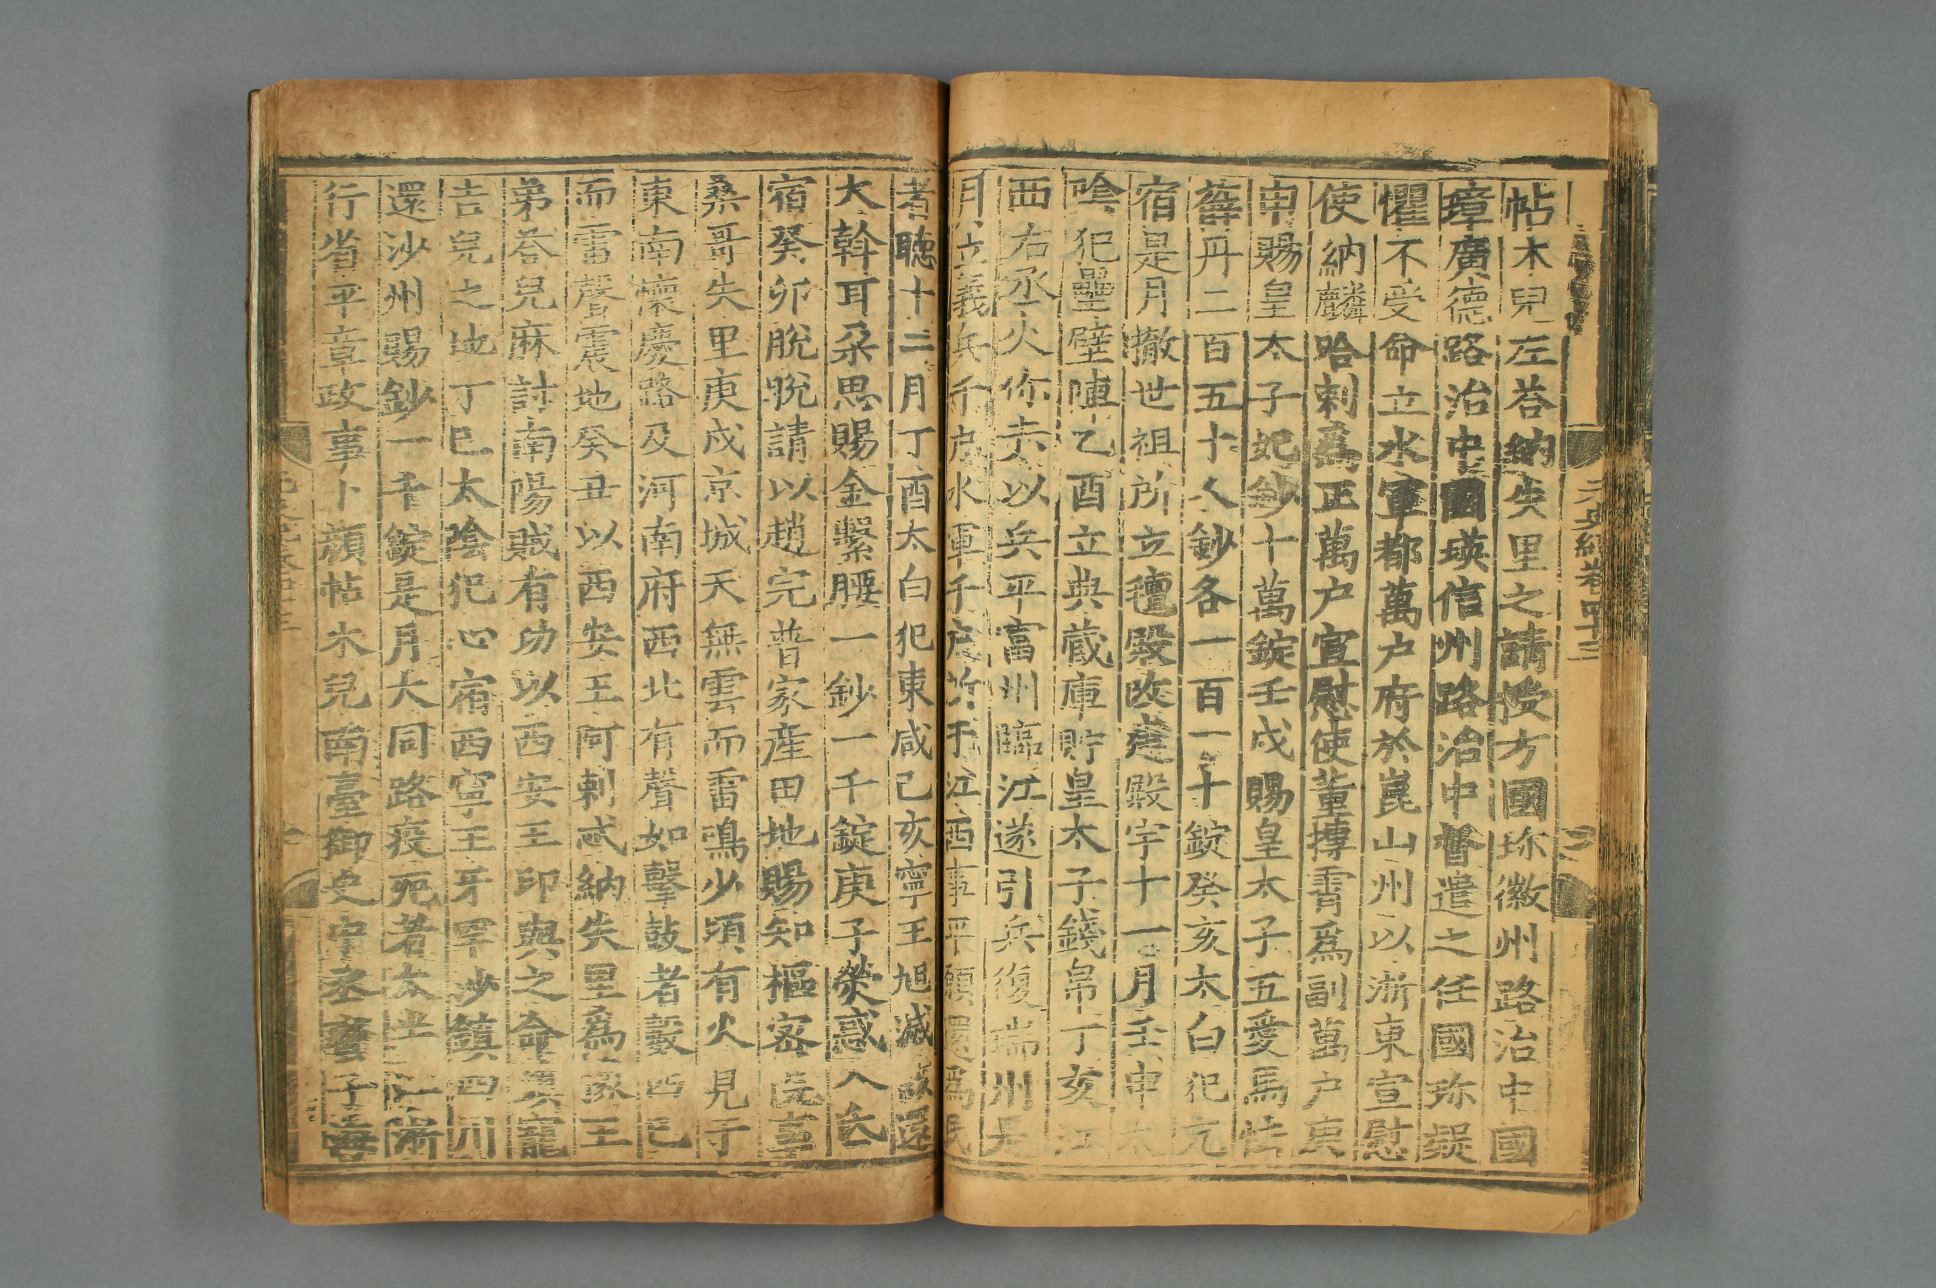 帖木兒左荅納失里之請授方國珎徽州路治中國
璋廣德路治中國瑛信州路治中督遣之任國珎疑
懼不受命立水軍都萬户府於崑山州以浙東宣慰
使納麟哈剌爲正萬户宣慰使董摶霄爲副萬户庚
申賜皇太子妃鈔十萬錠壬戌賜皇太子五愛馬怯
薛丹二百五十人鈔各一百一十錠癸亥太白犯亢
宿是月撤世祖所立氊殿改建殿宇十一月壬申太
陰犯壘壁陣乙酉立典蔵庫貯皇太子錢帛丁亥江
西右丞火你赤以兵平富州臨江遂引兵復瑞州是
月立義兵千户水軍千户所于江西事平願還爲民
者聽十二月丁酉太白犯東咸己亥寧王旭滅該還
大斡耳朶思賜金繫腰一鈔一千錠庚子熒惑入氐
宿癸卯脫脫請以趙完普家産田地賜知樞密院事
桑哥失里庚戌京城天無雲而雷鳴少頃有火見于
東南懷慶路及河南府西北有聲如擊鼓者數四已
而雷聲震地癸丑以西安王阿剌忒納失里爲豫王
弟荅兒麻討南陽賊有功以西安王印與之命鎮寵
吉兒之地丁巳太陰犯心宿西寧王牙罕沙鎮四川
還沙州賜鈔一千錠是月大同路疫死者太半江浙
行省平章政事卜顔帖木兒南臺御史中丞蠻子海
元史紀卷四十三